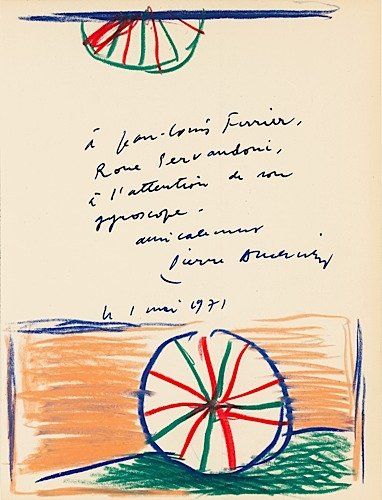 à Jean-Louis Ferrier,
Roue Servandoni,
à l'attention de son
gyroscope -
amicalement
Pierre
le 1 mai 1971